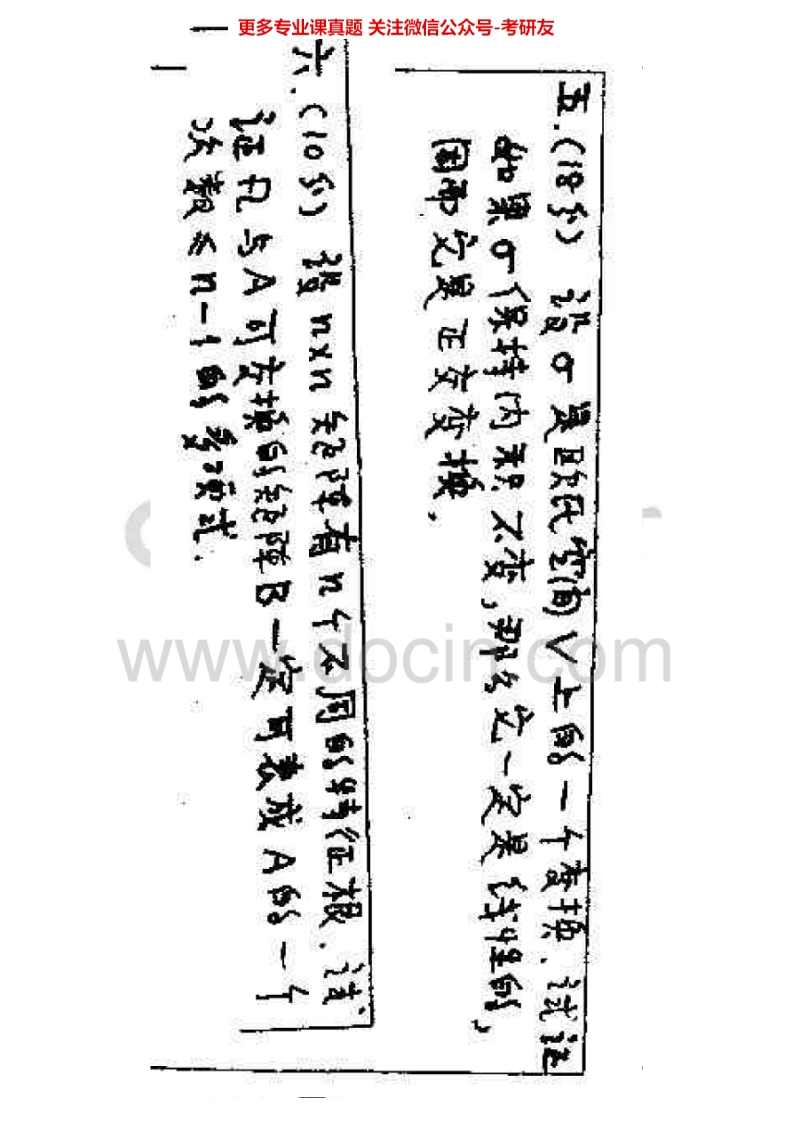 更多专业课真题 关注微信公众号-考研友
五.(18分) 设σ是欧氏空间V上的一个变换.试证
如果σ保持内积不变,那么它一定是线性的,
因而它是正交变换.
六.(10分) 设n×n矩阵有n个不同的特征根.试
证凡与A可交换的矩阵B一定可表成A的一个
次数≤n-1的多项式.
www.docin.com